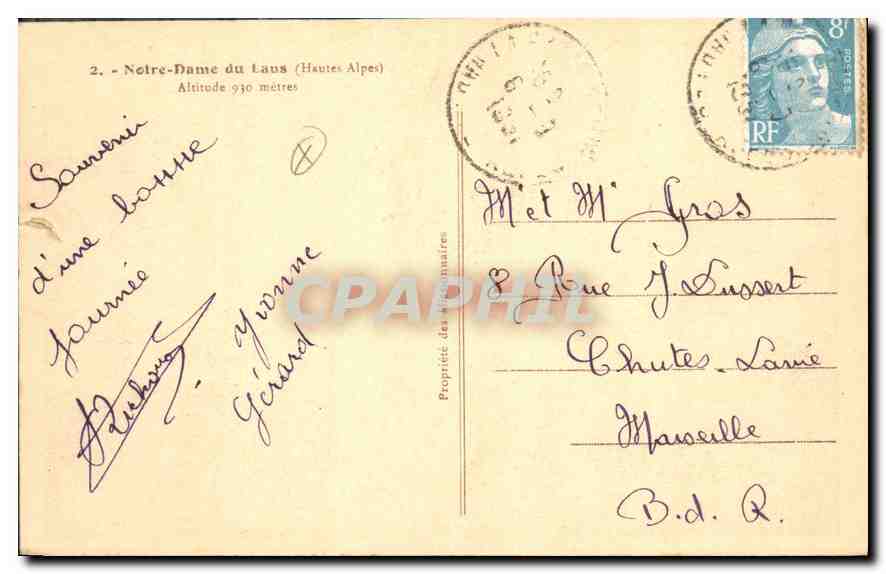 2. - Notre-Dame du Laus (Hautes Alpes)
Altitude 930 mètres
Souvenir
d'une bonne
journée
Yvonne
Gérard
Propriété des Missionnaires
8F
POSTES
RF
M et M Gros
8 Rue J. Dussert
Chutes-Lavie
Marseille
B.d.R.
CPAPHIL